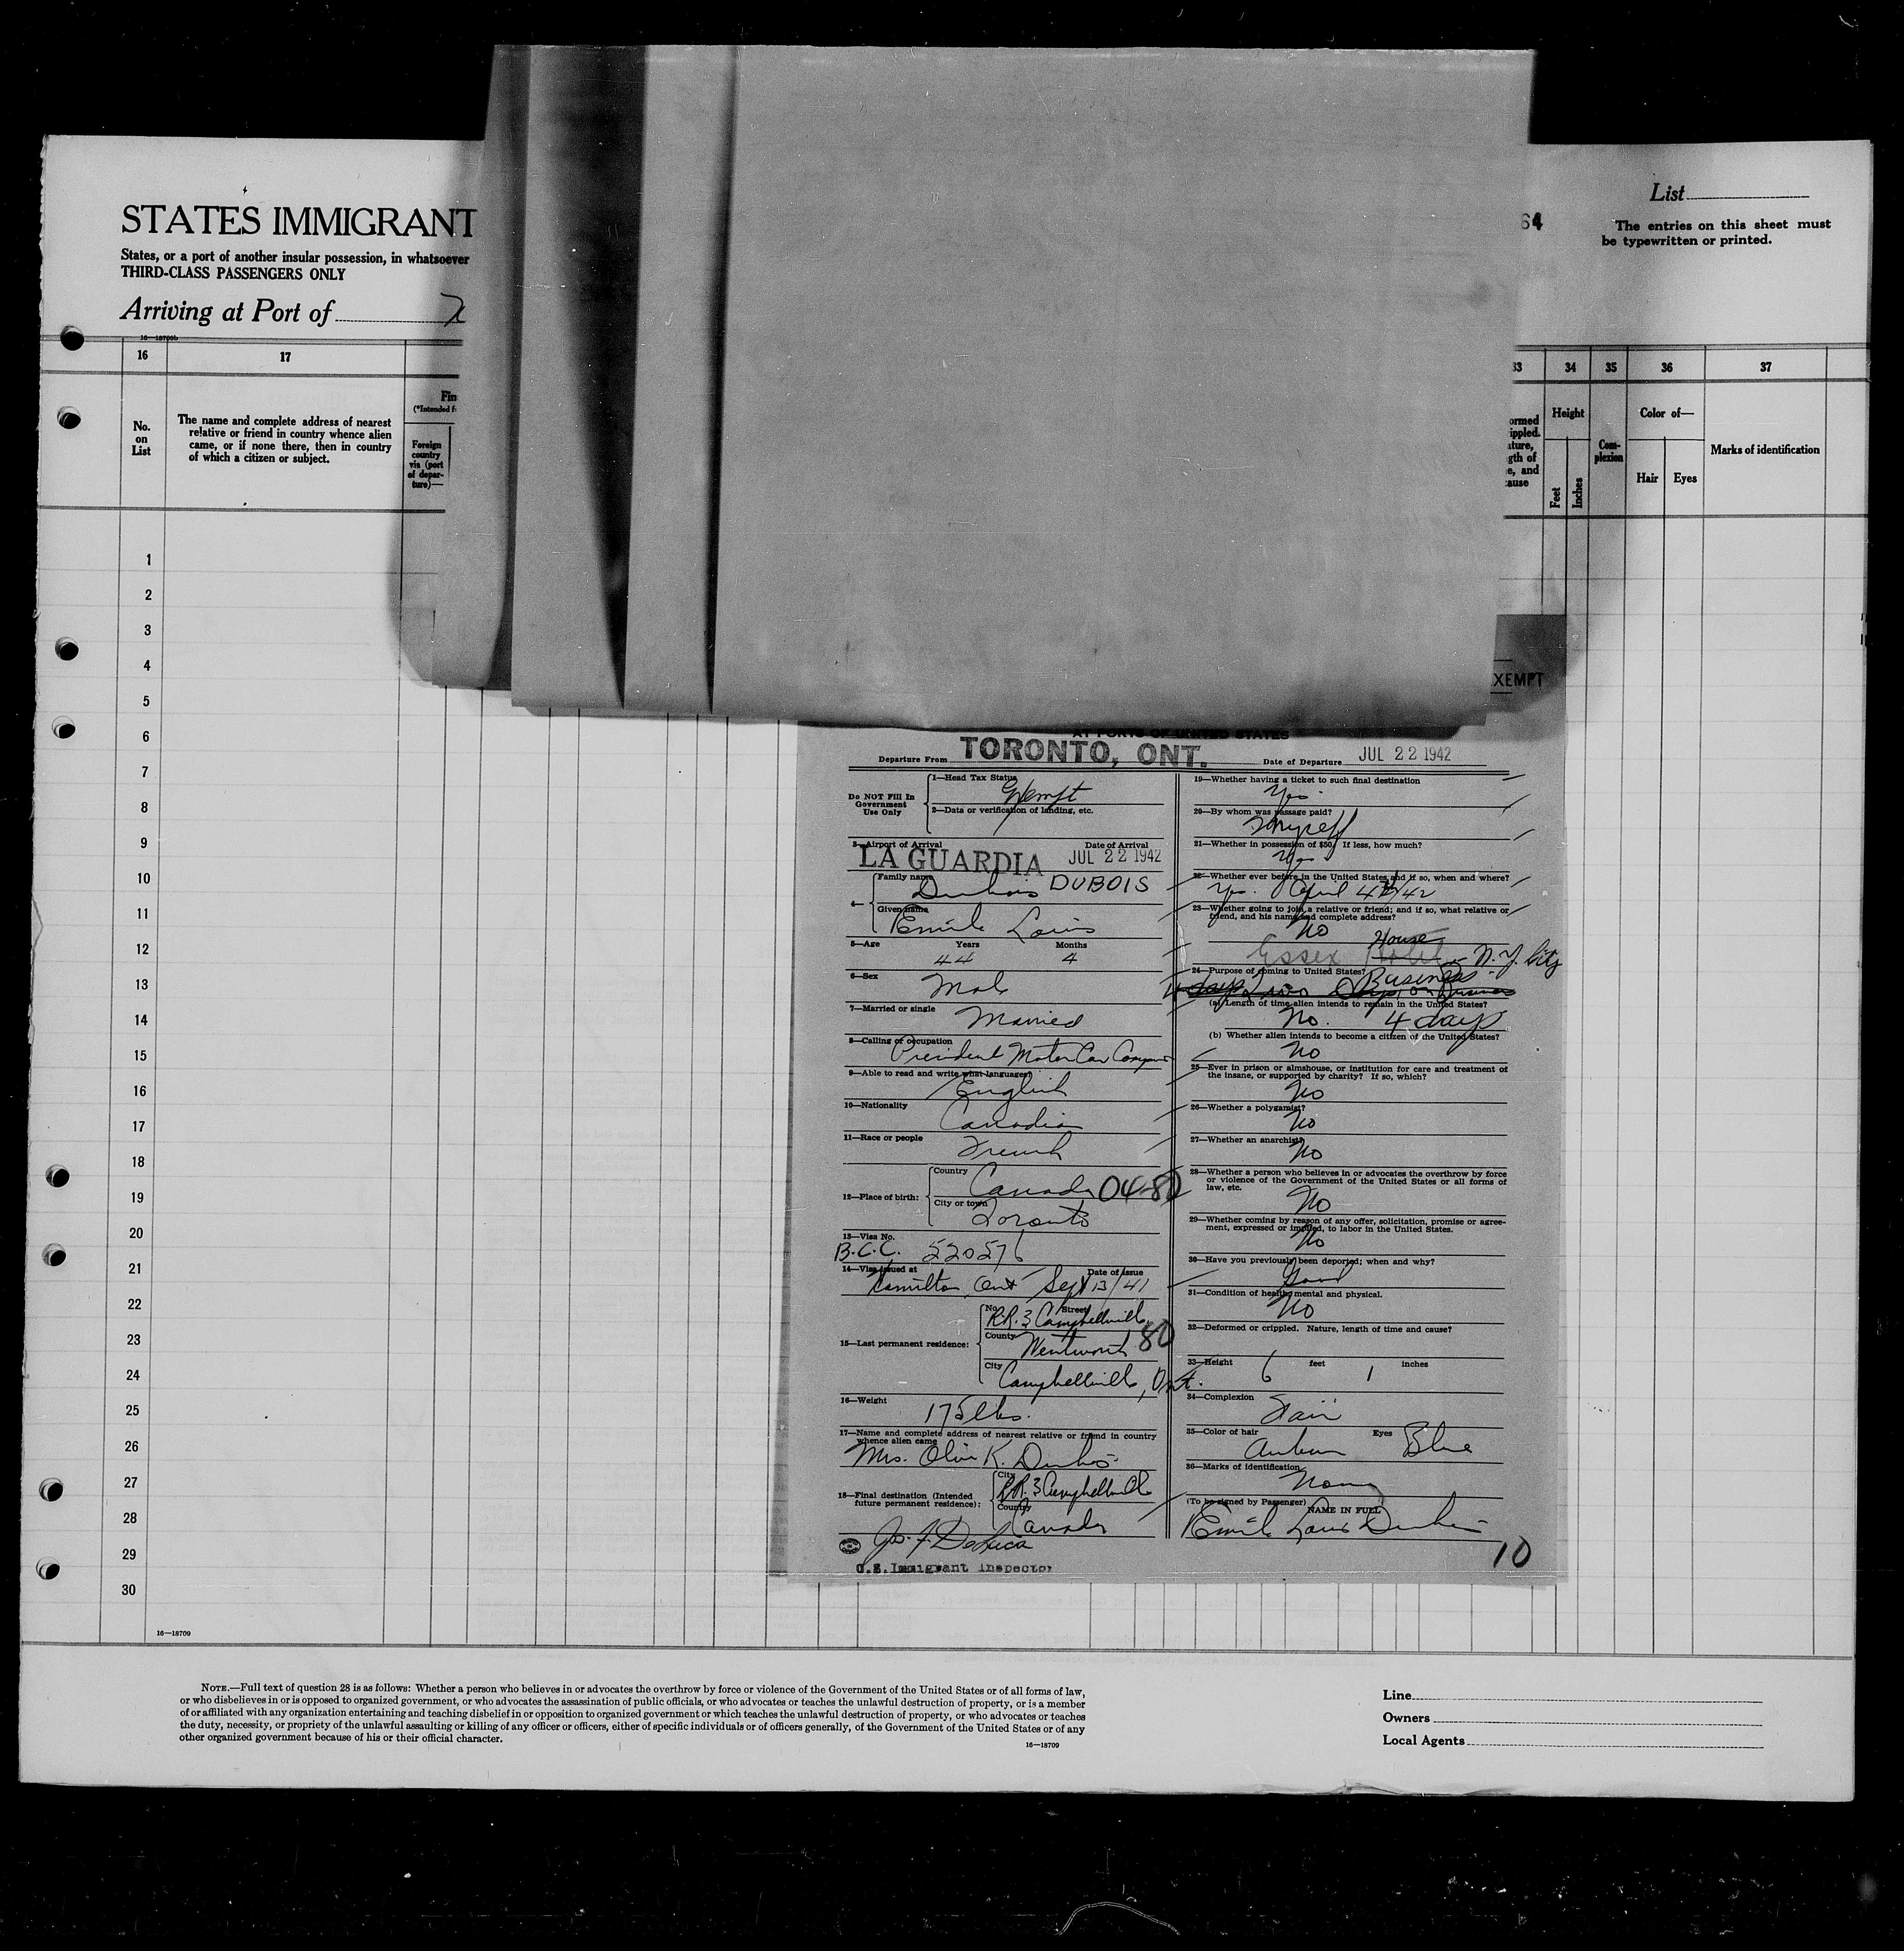 STATES IMMIGRANT
States, or a port of another insular possession, in whatsoever
THIRD-CLASS PASSENGERS ONLY
Arriving at Port of
16—18709b
64
List
The entries on this sheet must
be typewritten or printed.
16
17
33
34
35
36
37
No.
on
List
The name and complete address of nearest
relative or friend in country whence alien
came, or if none there, then in country
of which a citizen or subject.
Fin
(*Intended f
Foreign
country
via (port
of depar-
ture)—
ormed
ippled.
ature,
gth of
e, and
cause
Height
Feet
Inches
Com-
plexion
Color of—
Hair
Eyes
Marks of identification
1
2
3
4
5
6
7
8
9
10
11
12
13
14
15
16
17
18
19
20
21
22
23
24
25
26
27
28
29
30
16—18709
XEMPT
AT PORTS OF UNITED STATES
Departure From TORONTO, ONT. Date of Departure JUL 22 1942
Do NOT Fill In
Government
Use Only
1—Head Tax Status
Exempt
2—Data or verification of landing, etc.
3—Airport of Arrival Date of Arrival
LA GUARDIA JUL 22 1942
4—
Family name
Dubois DUBOIS
Given name
Emile Louis
5—Age Years Months
44 4
6—Sex
Male
7—Married or single
Married
8—Calling or occupation
President Motor Car Company
9—Able to read and write what languages?
English
10—Nationality
Canadian
11—Race or people
French
12—Place of birth:
Country
Canada 04-80
City or town
Toronto
13—Visa No.
B.C.C. 220276
14—Visa issued at Date of Issue
Hamilton, Ont Sept 13/41
15—Last permanent residence:
No. Street
R.R. 3 Campbellville
County
Wentworth 80
City
Campbellville, Ont.
16—Weight
175 lbs.
17—Name and complete address of nearest relative or friend in country
whence alien came
Mrs. Olive K. Dubois
18—Final destination (Intended
future permanent residence):
City
R.R. 3 Campbellville
Country
Canada
Jos. F. DeLuca
U.S. Immigrant Inspector
19—Whether having a ticket to such final destination
Yes
20—By whom was passage paid?
Myself
21—Whether in possession of $50. If less, how much?
Yes
22—Whether ever before in the United States and if so, when and where?
Yes. April
23—Whether going to join a relative or friend; and if so, what relative or
friend, and his name and complete address?
No
House
Essex Hotel - N.Y. City
24—Purpose of coming to United States?
Business
(a) Length of time alien intends to remain in the United States?
No. 4 days
(b) Whether alien intends to become a citizen of the United States?
No
25—Ever in prison or almshouse, or institution for care and treatment of
the insane, or supported by charity? If so, which?
No
26—Whether a polygamist?
No
27—Whether an anarchist?
No
28—Whether a person who believes in or advocates the overthrow by force
or violence of the Government of the United States or all forms of
law, etc.
No
29—Whether coming by reason of any offer, solicitation, promise or agree-
ment, expressed or implied, to labor in the United States.
No
30—Have you previously been deported; when and why?
Good
31—Condition of health, mental and physical.
No
32—Deformed or crippled. Nature, length of time and cause?
33—Height 6 feet 1 inches
34—Complexion
Fair
35—Color of hair Eyes
Auburn Blue
36—Marks of identification
None
(To be signed by Passenger) NAME IN FULL
Emile Louis Dubois
10
NOTE.—Full text of question 28 is as follows: Whether a person who believes in or advocates the overthrow by force or violence of the Government of the United States or of all forms of law,
or who disbelieves in or is opposed to organized government, or who advocates the assassination of public officials, or who advocates or teaches the unlawful destruction of property, or is a member
of or affiliated with any organization entertaining and teaching disbelief in or opposition to organized government or which teaches the unlawful destruction of property, or who advocates or teaches
the duty, necessity, or propriety of the unlawful assaulting or killing of any officer or officers, either of specific individuals or of officers generally, of the Government of the United States or of any
other organized government because of his or their official character.
16—18709
Line
Owners
Local Agents